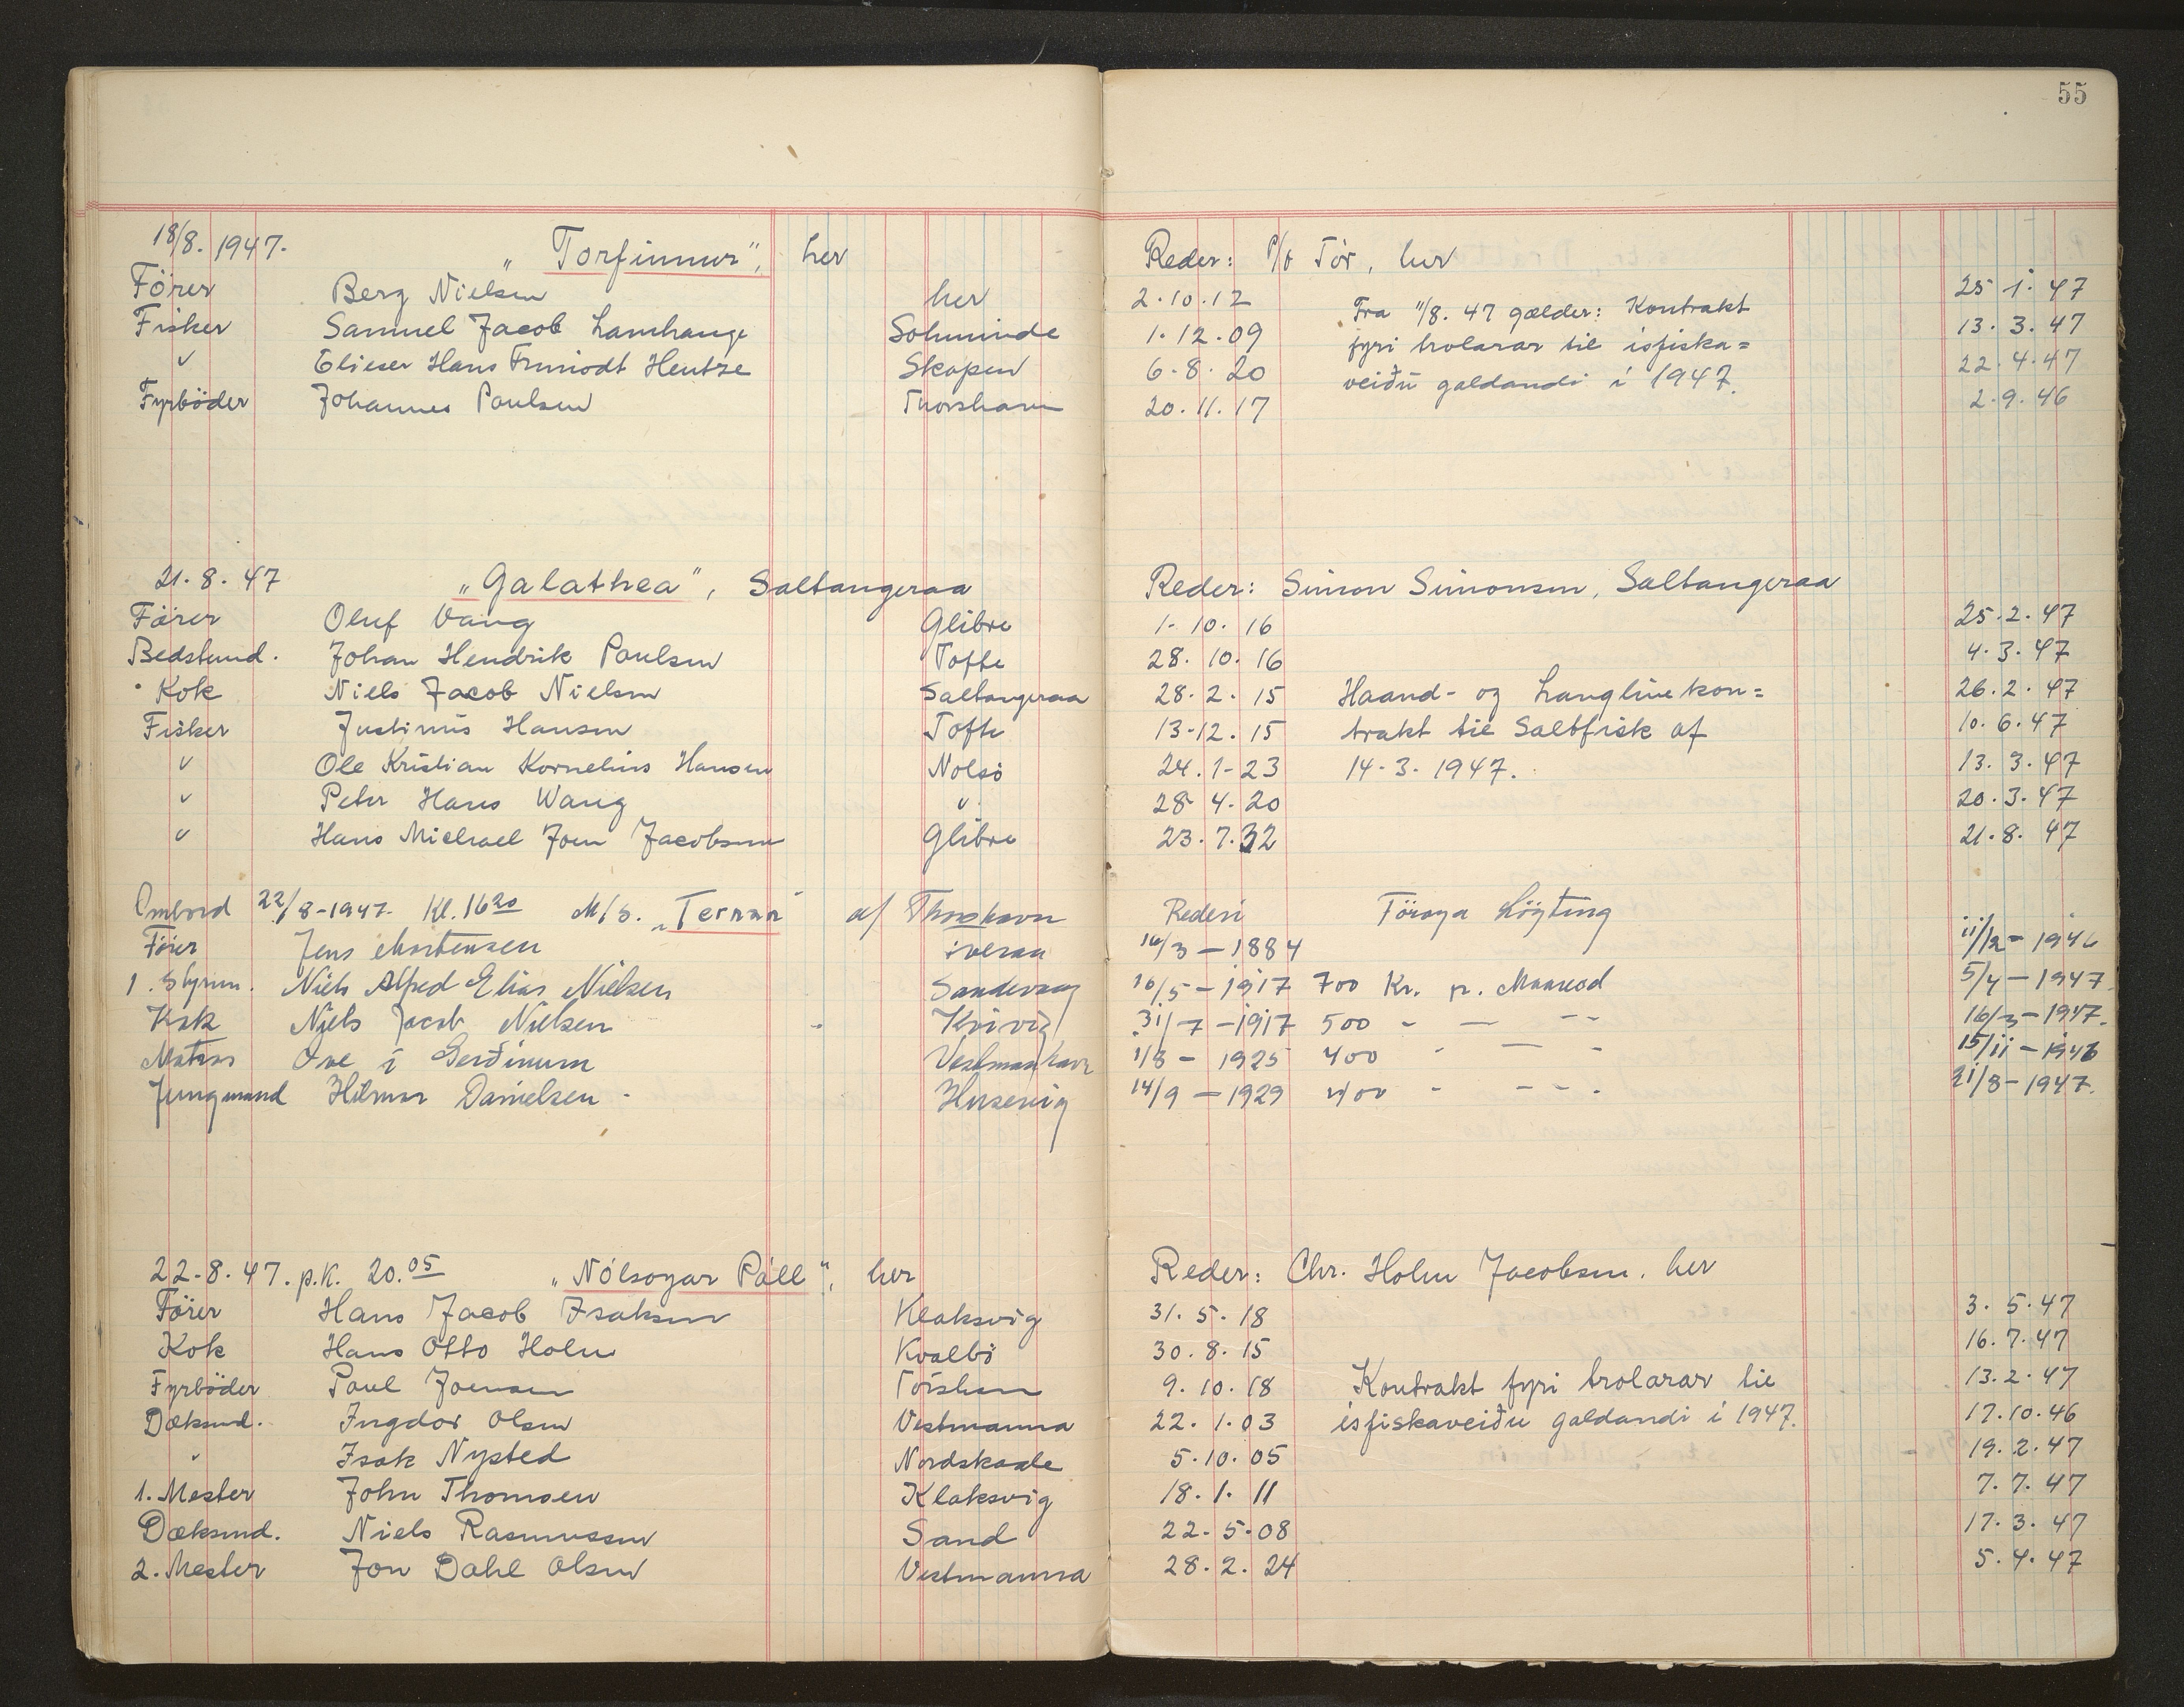 55
18/8. 1947. „Torfinnur", her Reder: P/f Tór, her
Förer Berg Nielsen her 2.10.12 25.1.47
Fisker Samuel Jacob Lamhauge Solmunde 1.12.09 Fra 11/8. 47 gælder: Kontrakt 13.3.47
v Elieser Hans Hentze Skopen 6.8.20 fyri trolarar til isfiska= 22.4.47
Fyrböder Johannes Poulsen Thorshavn 20.11.17 veiðu galdandi i 1947. 2.9.46
21.8.47 „Galathea", Saltangeraa Reder: Simon Simonsen, Saltangeraa
Förer Oluf Vang Glibre 1.10.16 25.2.47
Bedstemd. Johan Hendrik Poulsen Tofte 28.10.16 4.3.47
Kok Niels Jacob Nielsen Saltangeraa 28.2.15 Haand- og Langlinekon= 26.2.47
Fisker Justinus Hansen Tofte 13.12.15 trakt til Saltfisk af 10.6.47
v Ole Kristian Kornelius Hansen Nolsö 24.1.23 14.3.1947. 13.3.47
v Peter Hans Wang v 28.4.20 20.3.47
v Hans Michael Joen Jacobsen Glibre 23.7.32 21.8.47
Ombord 22/8-1947. Kl. 16 20 M/S. „Ternan" af Thorshavn Rederi Föroya Lögting
Förer Jens Mortensen 16/3 - 1884 11/12 - 1946
1. Styrm. Niels Alfred Elias Nielsen Sandevaag 16/5 - 1917 700 Kr. pr. Maaned 5/4 - 1947
Kok Niels Jacob Nielsen Kvivig 31/7 - 1917 500 - — -- 16/3 - 1947.
Matros Ove i Gerðinum Vestmanhavn 1/8 - 1925 400 - — - 15/11 - 1946
Jungmand Hilmar Danielsen - Husevig 14/9 - 1929 400 - - - - 21/8 - 1947.
22-8.47. p.k. 20.05 „Nólsoyar Páll", her Reder: Chr. Holm Jacobsen, her
Förer Hans Jacob Isaksen Klaksvig 31.5.18 3.5.47
Kok Hans Otto Holm Kvalbö 30.8.15 16.7.47
Fyrböder Poul Joensen Torshavn 9.10.18 Kontrakt fyri trolarar til 13.2.47
Dæksmd. Ingdor Olsen Vestmanna 22.1.03 isfiskaveiðu galdandi i 1947. 17.10.46
" Isak Nysted Nordskaale 5.10.05 19.2.47
1. Mester John Thomsen Klaksvig 18.1.11 7.7.47
Dæksmd. Niels Rasmussen Sand 22.5.08 17.3.47
2. Mester Jon Dahl Olsen Vestmanna 28.2.24 5.4.47